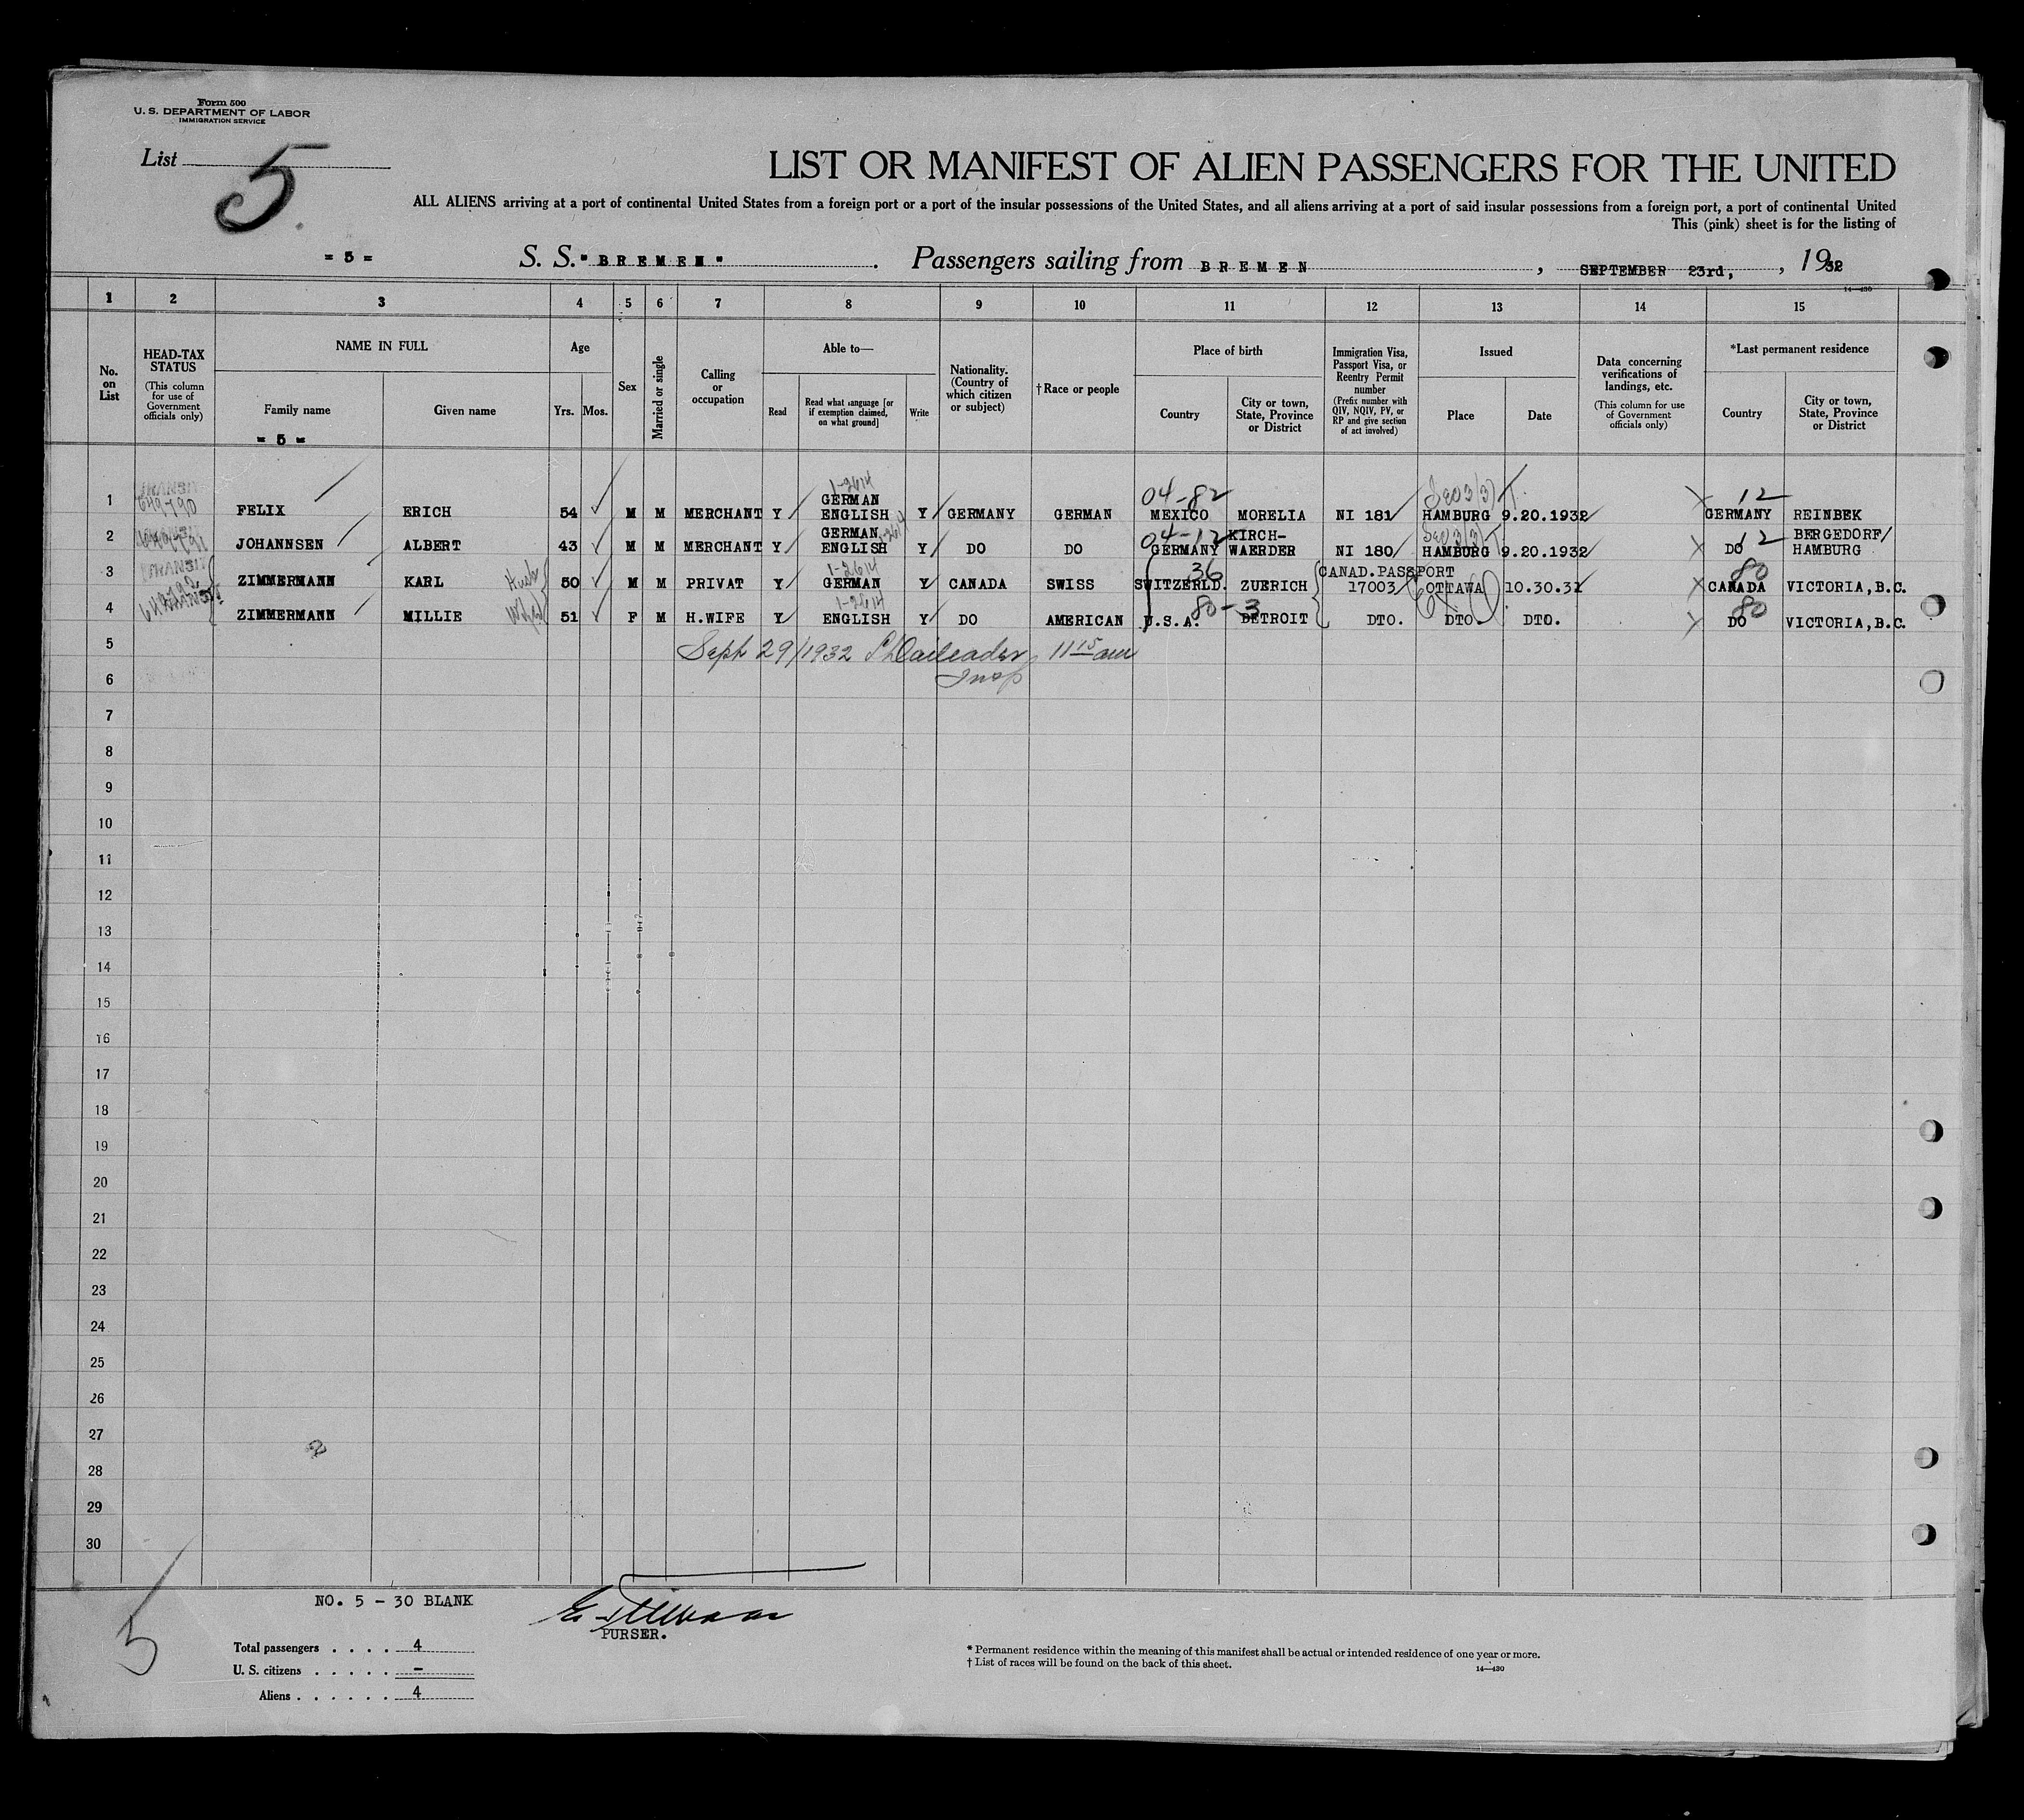 Form 500
U. S. DEPARTMENT OF LABOR
IMMIGRATION SERVICE
List 5
LIST OR MANIFEST OF ALIEN PASSENGERS FOR THE UNITED
ALL ALIENS arriving at a port of continental United States from a foreign port or a port of the insular possessions of the United States, and all aliens arriving at a port of said insular possessions from a foreign port, a port of continental United
This (pink) sheet is for the listing of
= 5 = S. S. "BREMEN". Passengers sailing from BREMEN, SEPTEMBER 23rd, 1932
14—430
1 2 3 4 5 6 7 8 9 10 11 12 13 14 15
No. on List
HEAD-TAX STATUS
(This column for use of Government officials only)
NAME IN FULL
Family name
Given name
= 5 =
Age
Yrs. Mos.
Sex
Married or single
Calling or occupation
Able to—
Read
Read what language [or if exemption claimed, on what ground]
Write
Nationality. (Country of which citizen or subject)
† Race or people
Place of birth
Country
City or town, State, Province or District
Immigration Visa, Passport Visa, or Reentry Permit number
(Prefix number with QIV, NQIV, PV, or RP and give section of act involved)
Issued
Place
Date
Data concerning verifications of landings, etc.
(This column for use of Government officials only)
*Last permanent residence
Country
City or town, State, Province or District
1-2614
04-82
12
1 TRANSIT 649790 FELIX ERICH 54 M M MERCHANT Y GERMAN ENGLISH Y GERMANY GERMAN MEXICO MORELIA NI 181 HAMBURG 9.20.1932 GERMANY REINBEK
04-12
12
2 JOHANNSEN ALBERT 43 M M MERCHANT Y GERMAN ENGLISH Y DO DO GERMANY KIRCH-WAERDER NI 180 HAMBURG 9.20.1932 DO BERGEDORF/HAMBURG
1-2614
36
80
3 TRANSIT ZIMMERMANN KARL Husb 50 M M PRIVAT Y GERMAN Y CANADA SWISS SWITZERLD. ZUERICH CANAD.PASSPORT 17003 OTTAWA 10.30.31 CANADA VICTORIA,B.C.
1-2614
80-3
80
4 ZIMMERMANN MILLIE Wife 51 F M H.WIFE Y ENGLISH Y DO AMERICAN U.S.A. DETROIT DTO. DTO. DTO. DO VICTORIA,B.C.
5 Sept 29/1932 11 15 am
Insp
6
7
8
9
10
11
12
13
14
15
16
17
18
19
20
21
22
23
24
25
26
27
28
29
30
2
5
NO. 5 - 30 BLANK
PURSER.
Total passengers . . . . 4
U. S. citizens . . . . . —
Aliens . . . . . . 4
* Permanent residence within the meaning of this manifest shall be actual or intended residence of one year or more.
† List of races will be found on the back of this sheet.
14—430